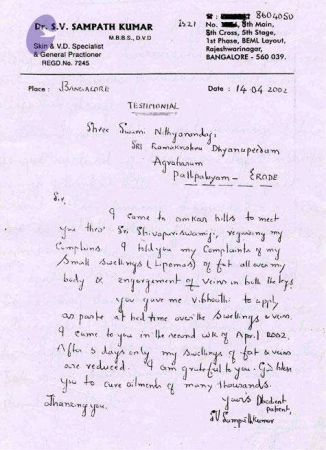 Dr. S.V. SAMPATH KUMAR
M.B.B.S., D.V.D
Skin & V.D. Specialist
& General Practioner
REGD.No. 7245
1521
8604050
8th Main,
8th Cross, 5th Stage,
1st Phase, BEML Layout,
Rajeshwarinagar,
BANGALORE - 560 039.
Place : BANGALORE
Date : 14-04-2002
TESTIMONIAL
Shree Swami Nithyananda;
SRI Ramakrishna Dhyanapeetam
Agraharam
Pallipalayam - ERODE
Sir,
I came to omkar hills to meet
you thro' Sri Shivapuriswamiji, regarding my
Complains. I told you my Complaints of my
Small swellings (Lipomas) of fat all over my
body & engorgement of Veins in both the legs
you gave me Vibhuthi to apply
as paste at bed time over the swellings & veins.
I came to you in the second wk of April 2002.
After 5 days only my swellings of fat & veins
are reduced. I am grateful to you. God bless
you to cure ailments of many thousands.
Thanking you.
Your's Obedient
patient,
SV Sampathkumar